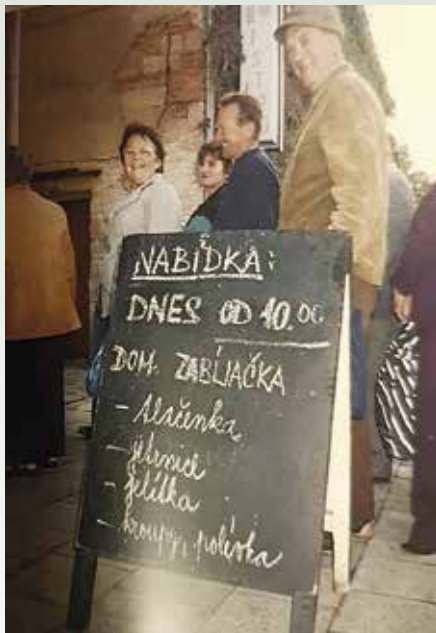 NABÍDKA:
DNES OD 10.00
DOM. ZABIJAČKA
- tlačenka
- jitrnice
- jelítka
- kroupy, polévka